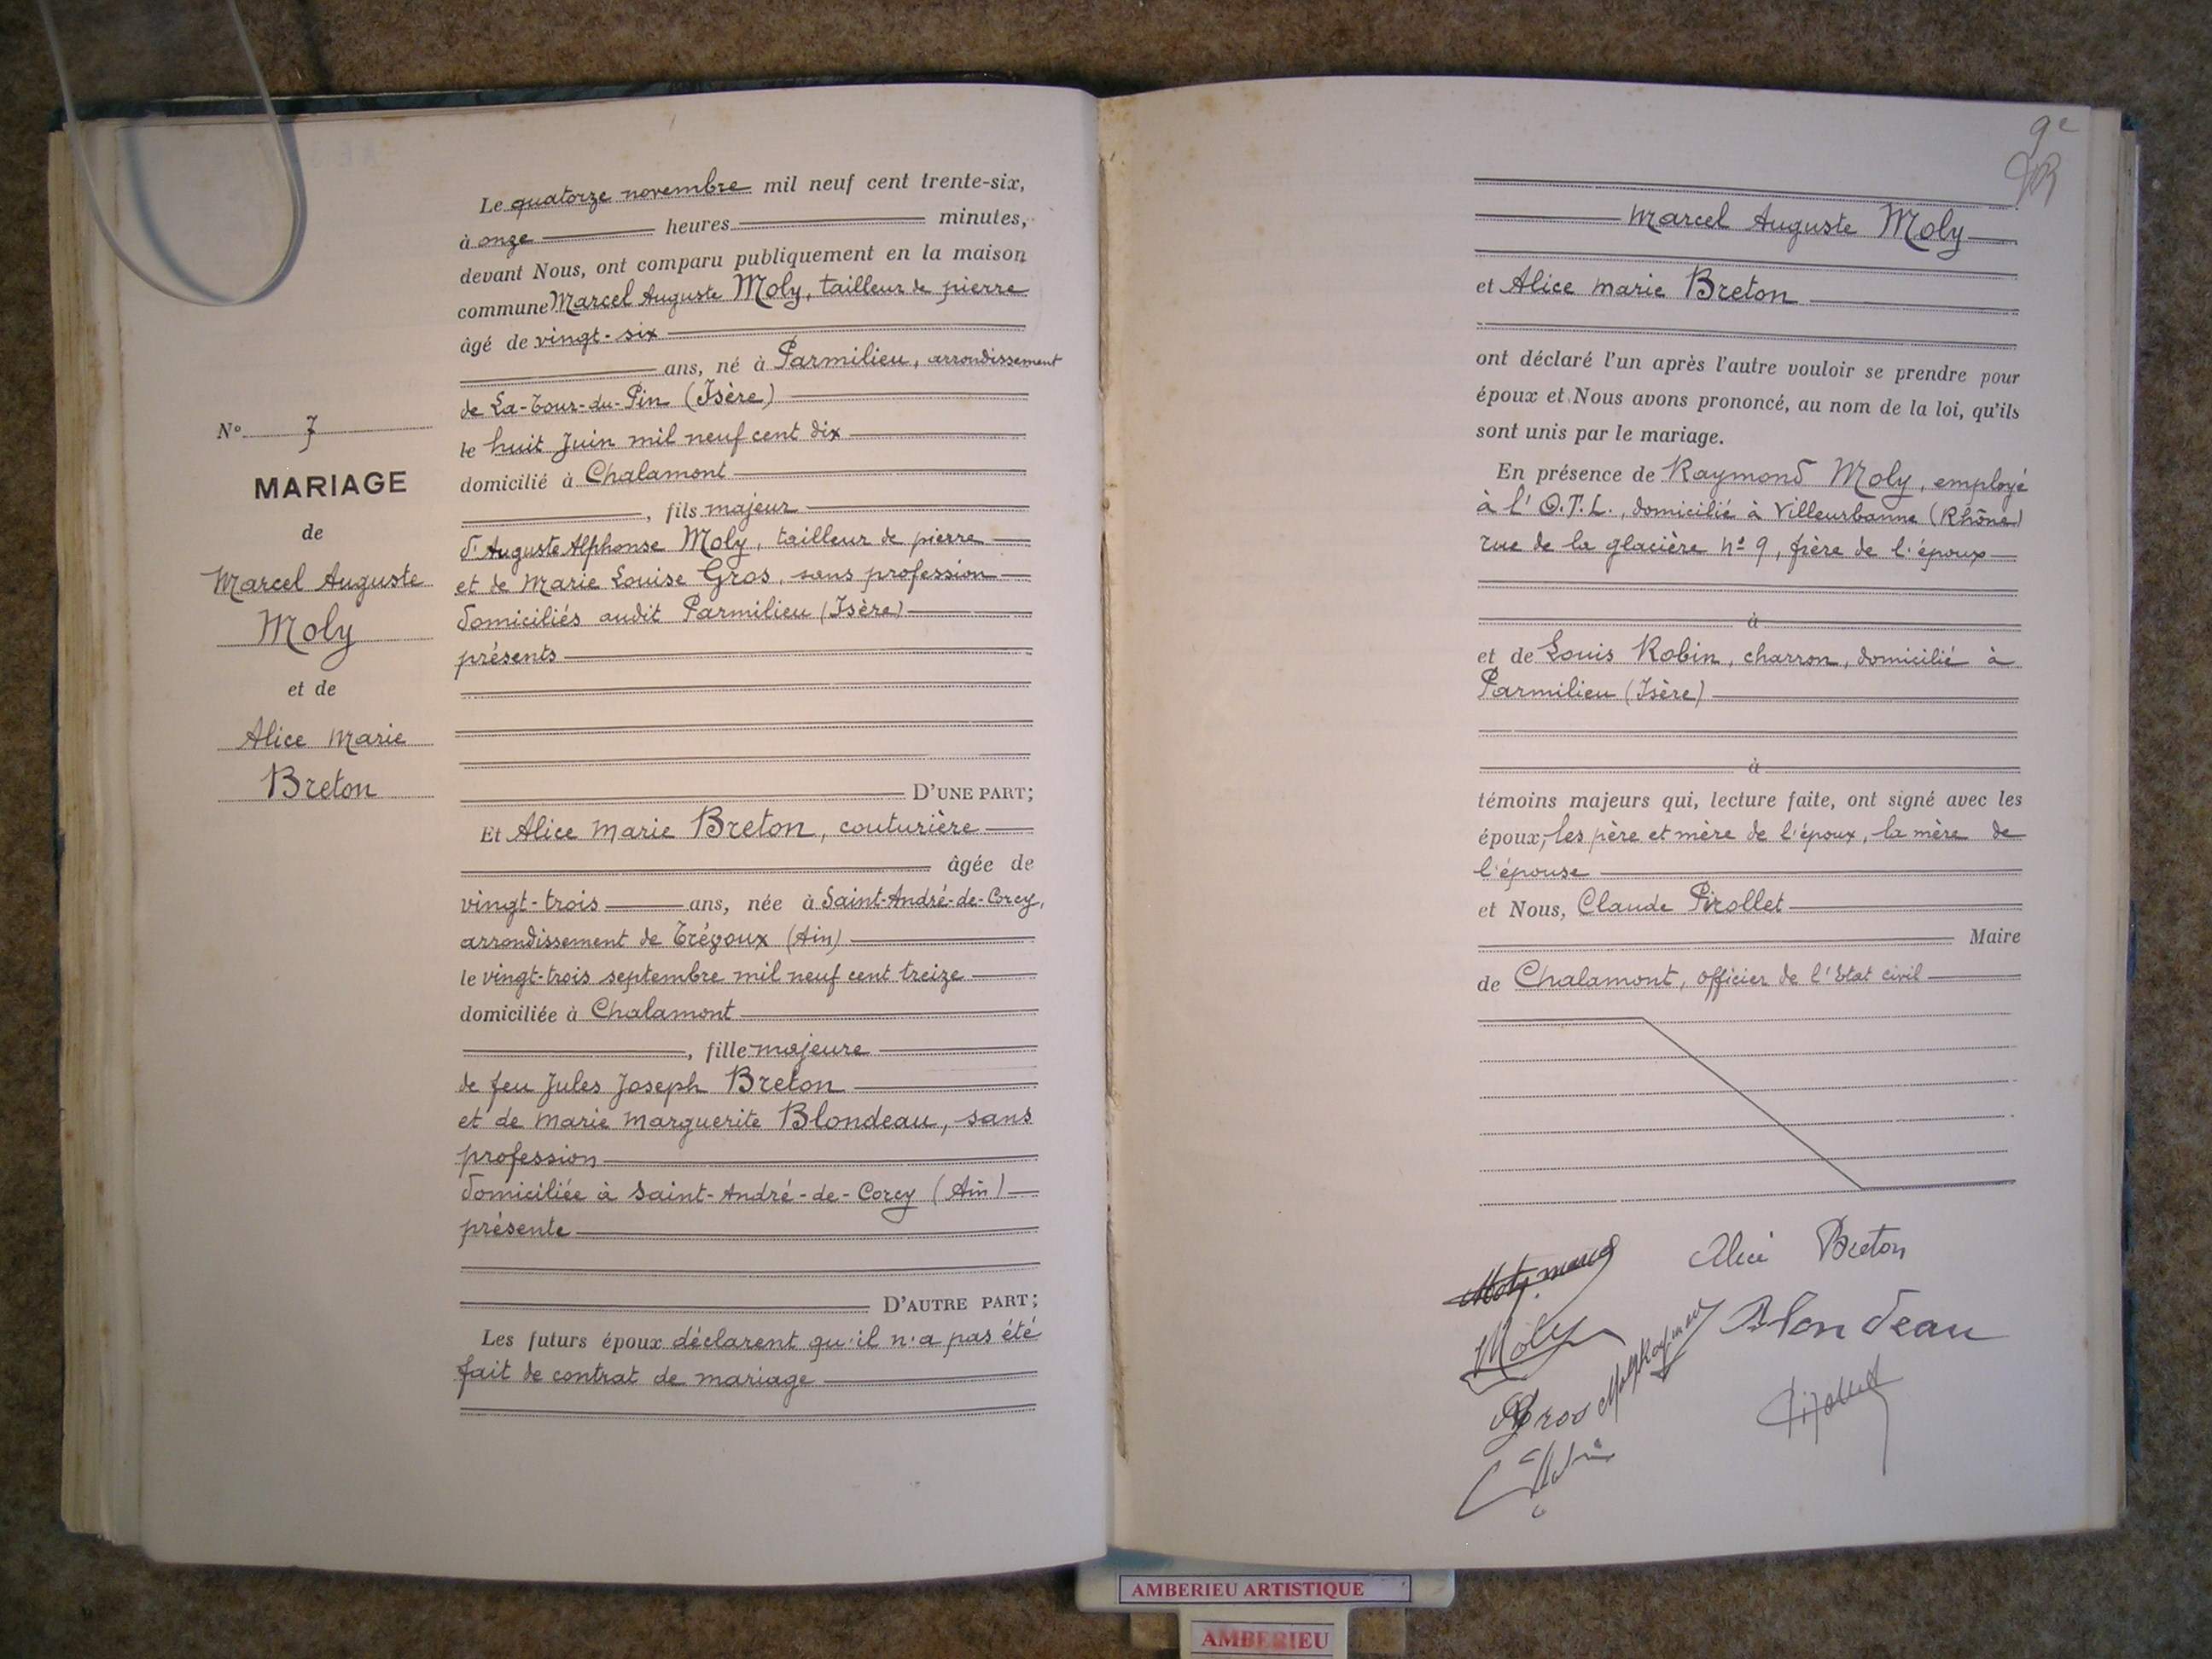 N° 7
MARIAGE
de
Marcel Auguste
Moly
et de
Alice Marie
Breton
Le quatorze novembre mil neuf cent trente-six,
à onze heures minutes,
devant Nous, ont comparu publiquement en la maison
commune Marcel Auguste Moly, tailleur de pierre
âgé de vingt-six
ans, né à Parmilieu, arrondissement
de La-Tour-du-Pin (Isère)
le huit Juin mil neuf cent dix
domicilié à Chalamont
, fils majeur
d'Auguste Alphonse Moly, tailleur de pierre
et de Marie Louise Gros, sans profession
domiciliés audit Parmilieu (Isère)
présents
D'UNE PART;
Et Alice Marie Breton, couturière
âgée de
vingt-trois ans, née à Saint-André-de-Corcy,
arrondissement de Trévoux (Ain)
le vingt-trois septembre mil neuf cent treize
domiciliée à Chalamont
, fille majeure
de feu Jules Joseph Breton
et de Marie Marguerite Blondeau, sans
profession
domiciliée à Saint-André-de-Corcy (Ain)
présente
D'AUTRE PART;
Les futurs époux déclarent qu'il n'a pas été
fait de contrat de mariage
9e
Marcel Auguste Moly
et Alice Marie Breton
ont déclaré l'un après l'autre vouloir se prendre pour
époux et Nous avons prononcé, au nom de la loi, qu'ils
sont unis par le mariage.
En présence de Raymond Moly, employé
à l'O.T.L., domicilié à Villeurbanne (Rhône)
rue de la glacière n° 9, frère de l'époux
à
et de Louis Robin, charron, domicilié à
Parmilieu (Isère)
à
témoins majeurs qui, lecture faite, ont signé avec les
époux, les père et mère de l'époux, la mère de
l'épouse
et Nous, Claude Pirollet
Maire
de Chalamont, officier de l'Etat civil
Moly marcel
Alice Breton
Moly
Moly Raymond
Blondeau
Gros
Robin
Pirollet
AMBERIEU ARTISTIQUE
AMBERIEU